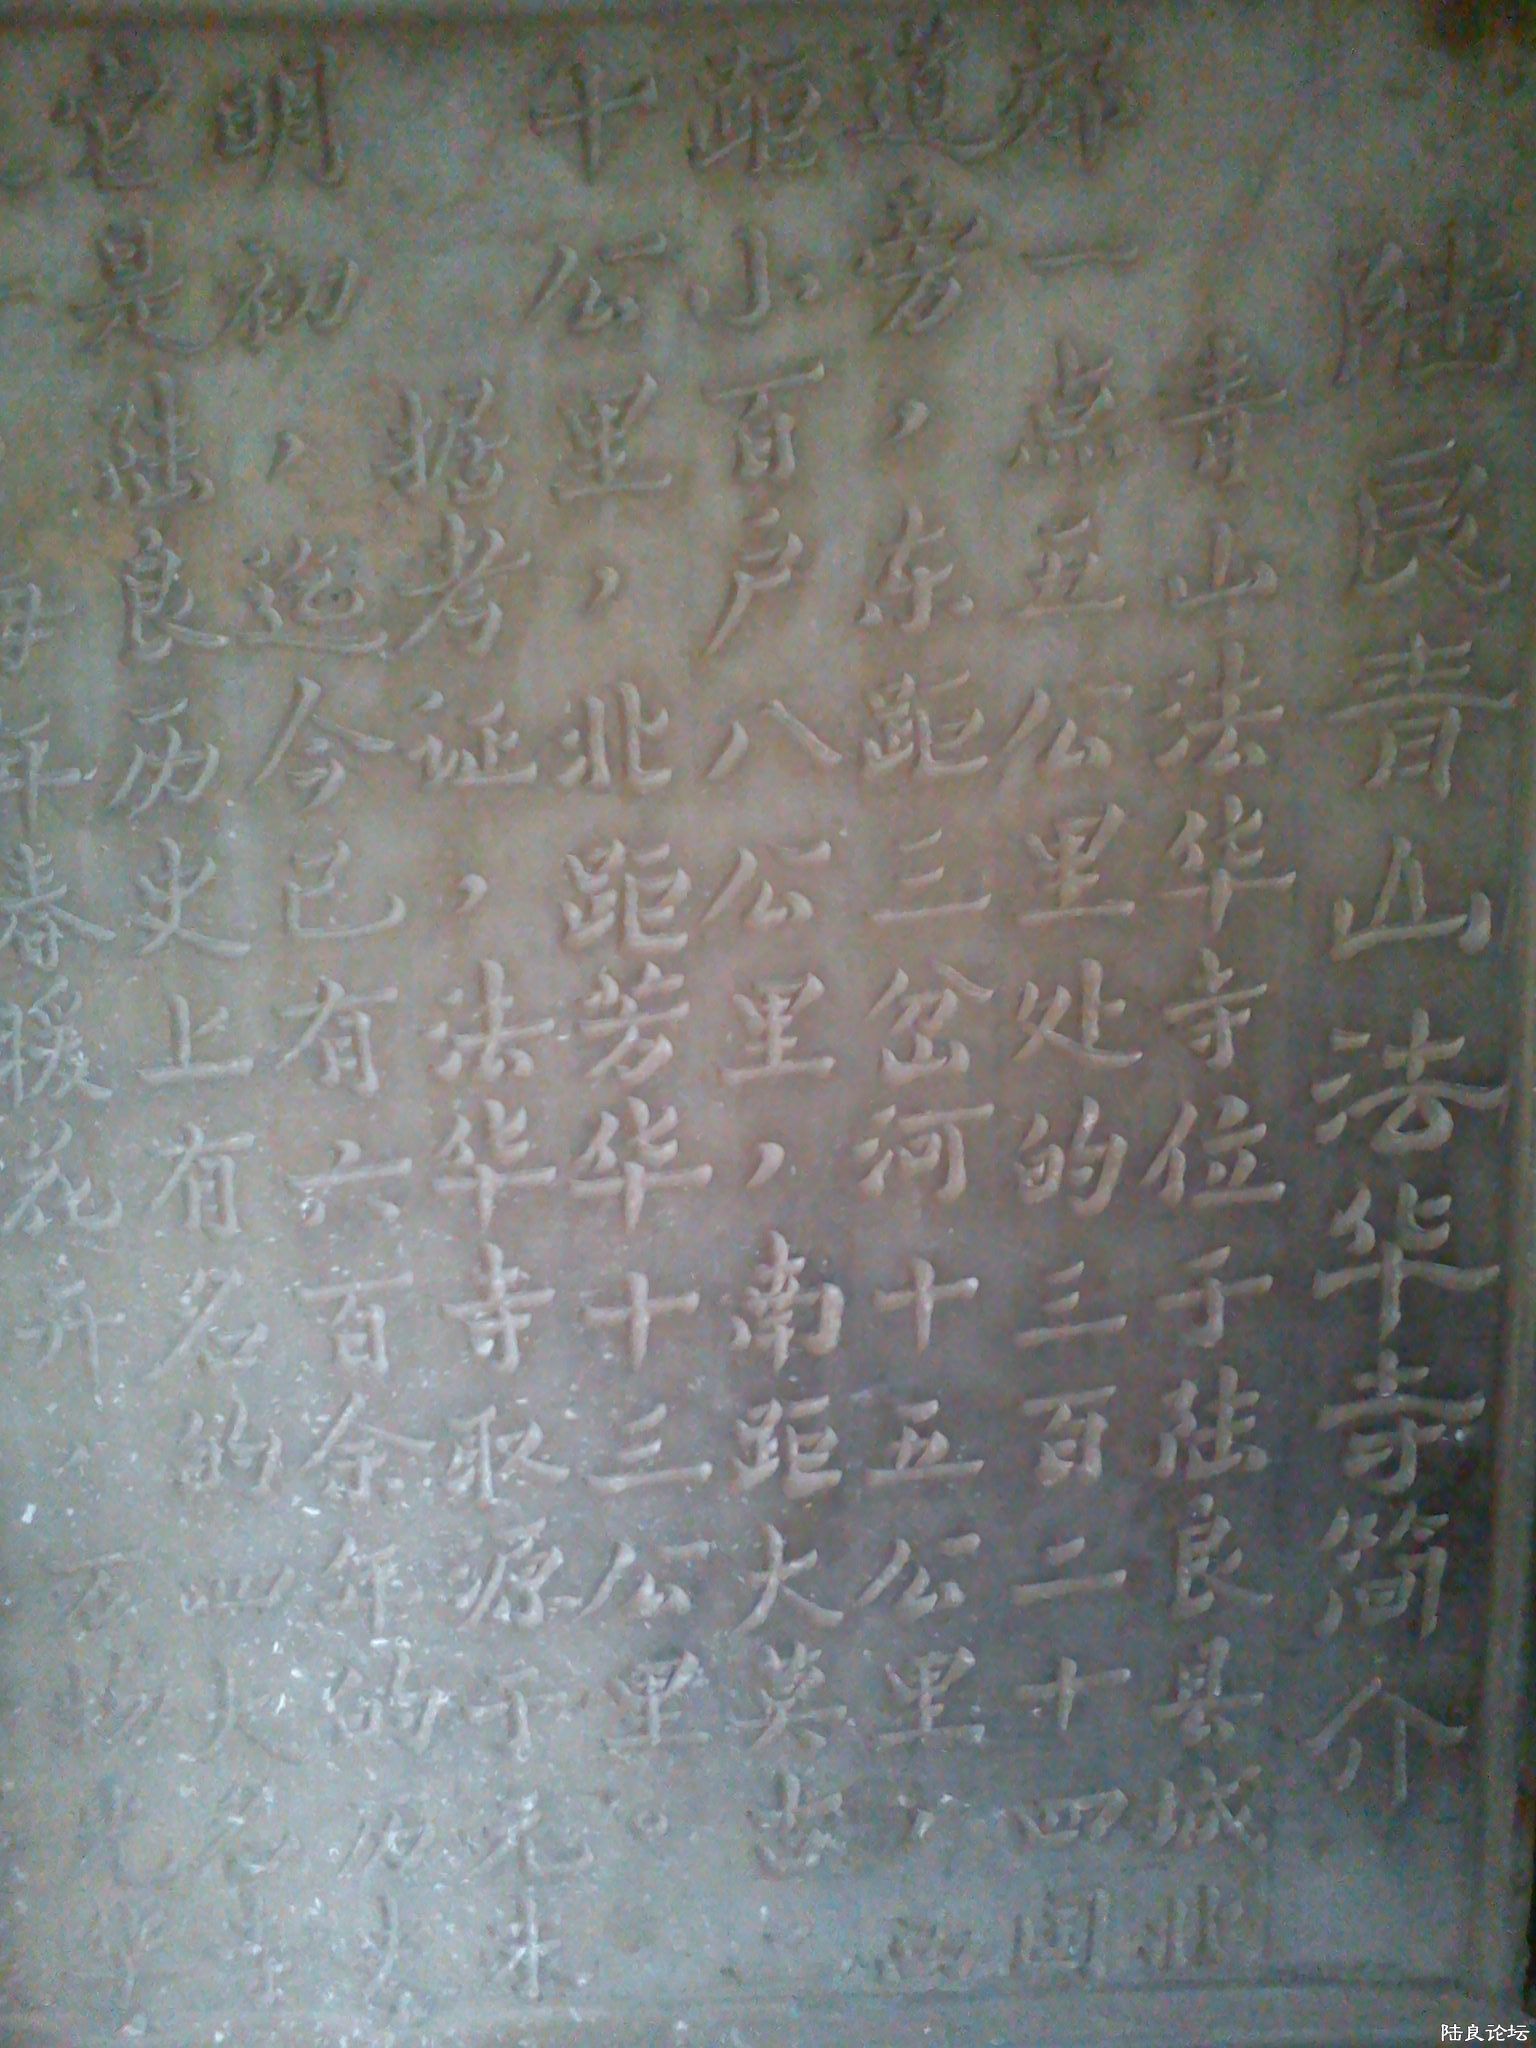 陆良青山法华寺简介
青山法华寺位于陆良县城北
郊一点五公里处的三百二十四国
道旁，东距三岔河十五公里，西
距小百户八公里，南距大莫古
十公里，北距芳华十三公里。
据考证，法华寺取源于元末
明初，迄今已有六百余年的历史
它是陆良历史上有名的四大名寺
每年春暖花开，万物
陆良论坛